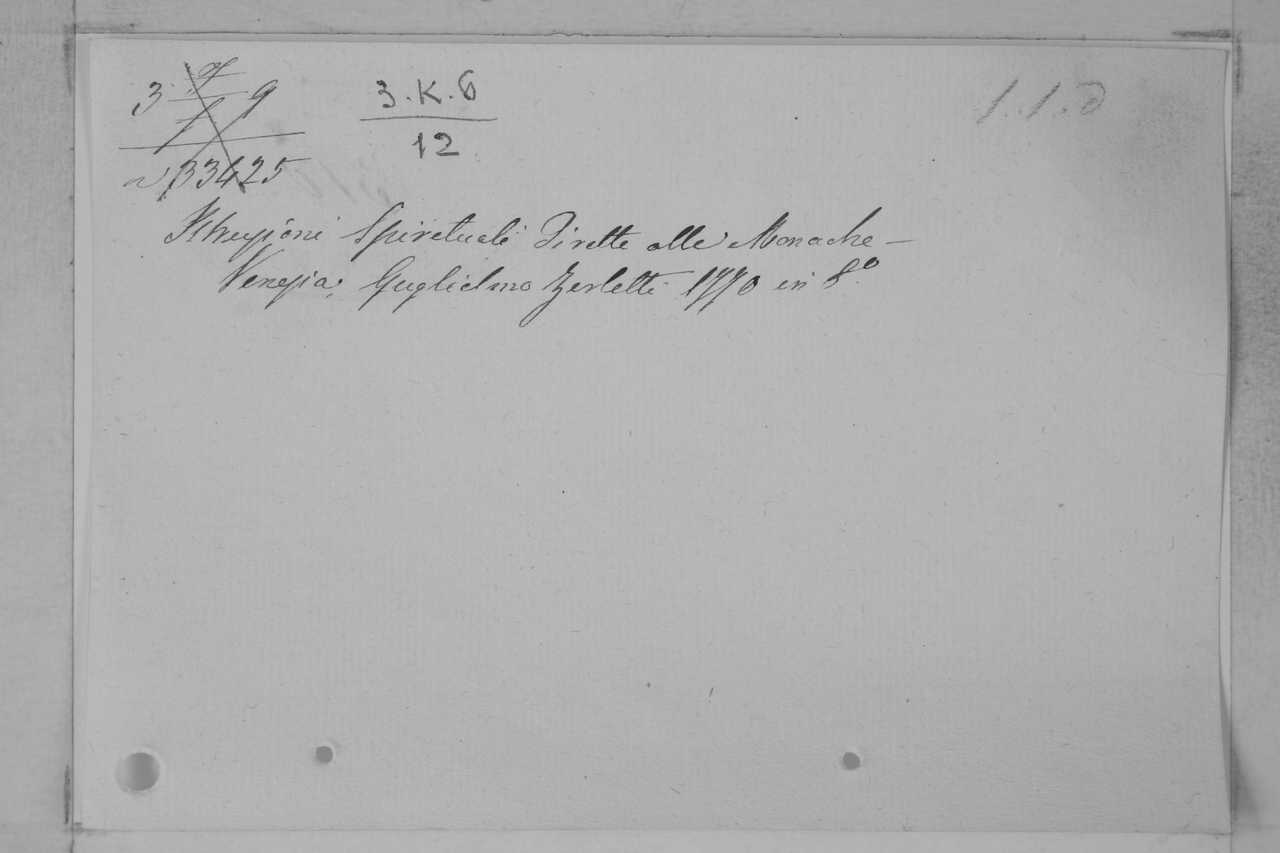 3 9
3.K.6
12
1.1.d
33425
Istruzioni Spirituali Dirette alle Monache –
Venezia, Guglielmo Zerletti 1770 in 8.º